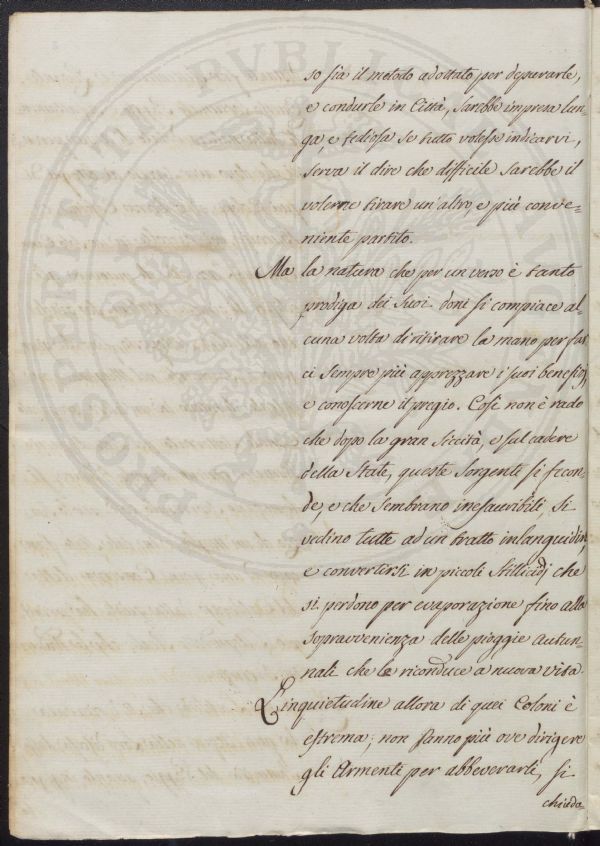 so sia il metodo adottato per depurarle,
e condurle in Città, sarebbe impresa lun=
ga e tediosa se tutto volessi indicarvi,
serva il dire che difficile sarebbe il
volerne tirare un'altro, e più conve=
niente partito.
Ma la natura che per un verso è tanto
prodiga dei suoi doni si compiace al=
cuna volta di ritirare la mano per far
ci sempre più apprezzare i suoi benefizj,
e conoscerne il pregio. Così non è rado
che dopo la gran siccità, e sul cadere
della State, queste sorgenti si fecon=
de, e che sembrano inesauribili, si
vedino tutte ad un tratto inlanguidirsi,
e convertirsi in piccoli stillicidj che
si perdono per evaporazione fino alla
sopravvenienza delle pioggie autun=
nali che le riconduce a nuova vita.
L'inquietudine allora di quei Coloni è
estrema; non sanno più ove dirigere
gli Armenti per abbeverarli, si
chieda
PROSPERITATI PVBLICAE